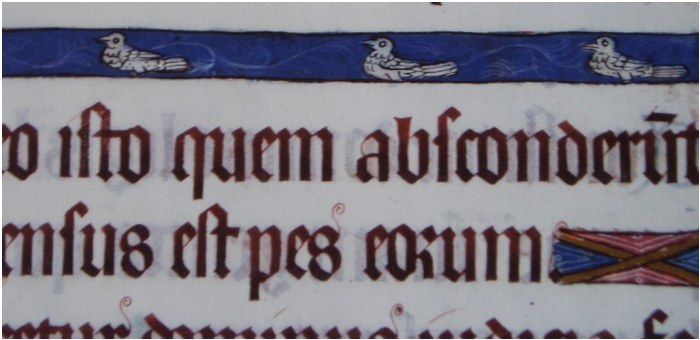 eo iſto quem abſconderūt
enſus eſt pes eorum.